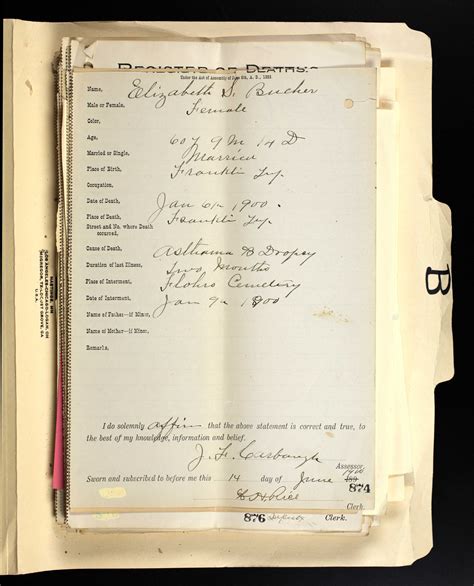 REGISTER OF DEATHS
Under the Act of Assembly of June 6th, A. D., 1893
Name, Elizabeth S. Bucher
Male or Female, Female
Color,
Age, 60 Y 9 M 14 D
Married or Single, Married
Place of Birth, Franklin Twp.
Occupation,
Date of Death, Jan 6th 1900.
Place of Death, Franklin Twp.
Street and No. where Death occurred,
Cause of Death, Asthama & Dropsy
Duration of last Illness, Two Months
Place of Interment, Flohrs Cemetery
Date of Interment, Jan 9th 1900
Name of Father—if Minor,
Name of Mother—if Minor,
Remarks.
I do solemnly affirm that the above statement is correct and true, to
the best of my knowledge, information and belief.
J. F. Carbaugh
Assessor.
Sworn and subscribed before me this 14 day of June 1900
874
Clerk.
876
Clerk.
B
U.S.A.